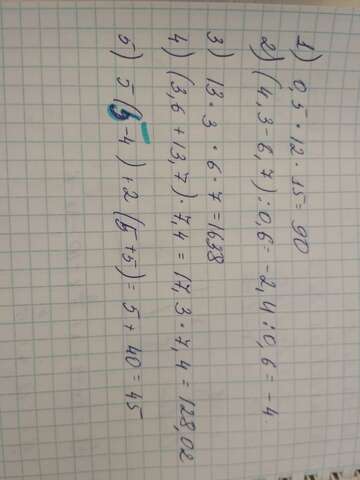 1) 0,5 · 12 · 15 = 90
2) (4,3 - 6,7) : 0,6 = -2,4 : 0,6 = -4
3) 13 · 3 · 6 · 7 = 1638
4) (3,6 + 13,7) · 7,4 = 17,3 · 7,4 = 128,02
5) 5 (5 - 4) + 2 (15 + 5) = 5 + 40 = 45